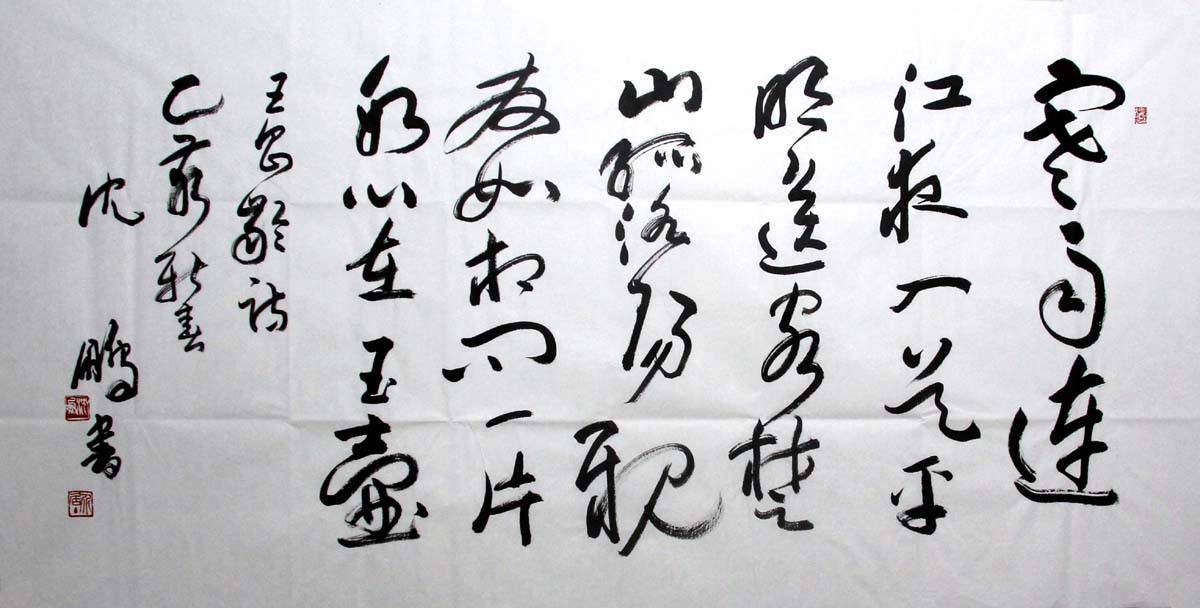 寒雨連
江夜入吳平
明送客楚
山孤洛陽親
友如相問一片
冰心在玉壺
王昌齡詩
新春
沈鵬書